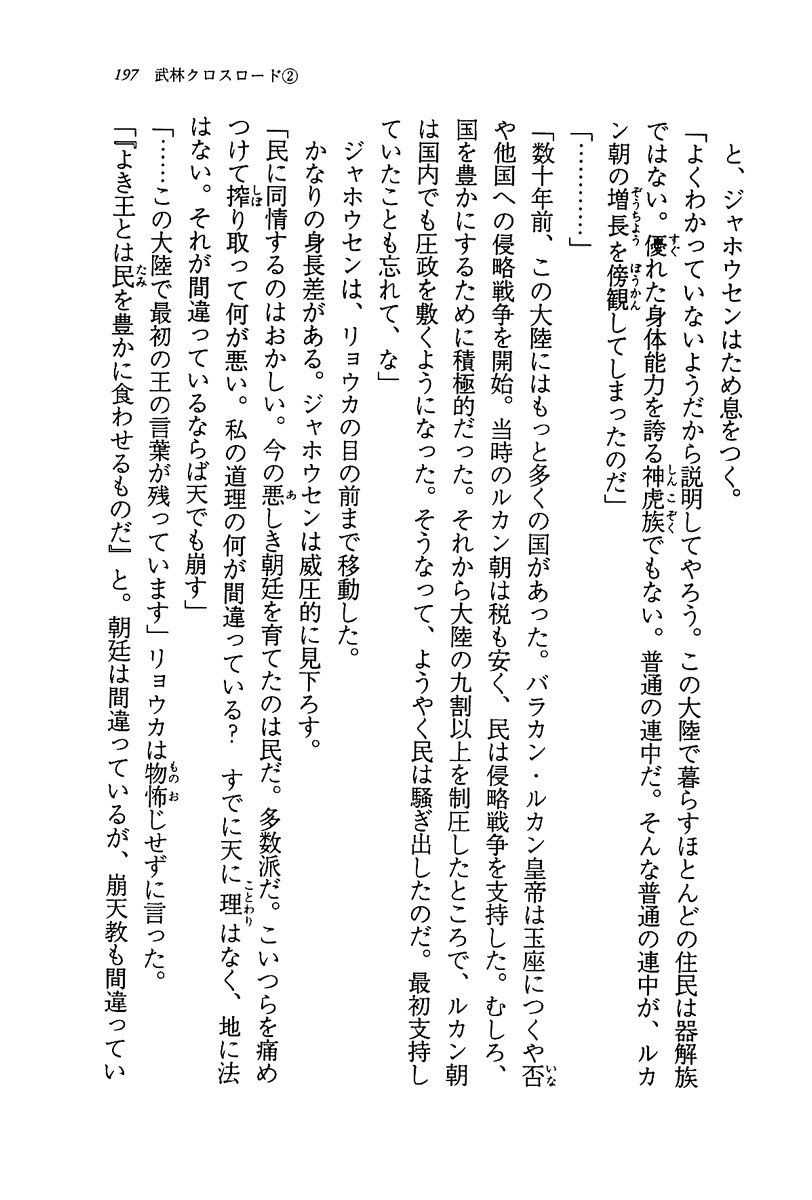 197　武林クロスロード②
と、ジャホウセンはため息をつく。
「よくわかっていないようだから説明してやろう。この大陸で暮らすほとんどの住民は器解族
ではない。優れた身体能力を誇る神虎族でもない。普通の連中だ。そんな普通の連中が、ルカ
ン朝の増長を傍観してしまったのだ」
「…………」
「数十年前、この大陸にはもっと多くの国があった。バラカン・ルカン皇帝は玉座につくや否
や他国への侵略戦争を開始。当時のルカン朝は税も安く、民は侵略戦争を支持した。むしろ、
国を豊かにするために積極的だった。それから大陸の九割以上を制圧したところで、ルカン朝
は国内でも圧政を敷くようになった。そうなって、ようやく民は騒ぎ出したのだ。最初支持し
ていたことも忘れて、な」
ジャホウセンは、リョウカの目の前まで移動した。
かなりの身長差がある。ジャホウセンは威圧的に見下ろす。
「民に同情するのはおかしい。今の悪しき朝廷を育てたのは民だ。多数派だ。こいつらを痛め
つけて搾り取って何が悪い。私の道理の何が間違っている？　すでに天に理はなく、地に法
はない。それが間違っているならば天でも崩す」
「……この大陸で最初の王の言葉が残っています」リョウカは物怖じせずに言った。
「『よき王とは民を豊かに食わせるものだ』と。朝廷は間違っているが、崩天教も間違ってい